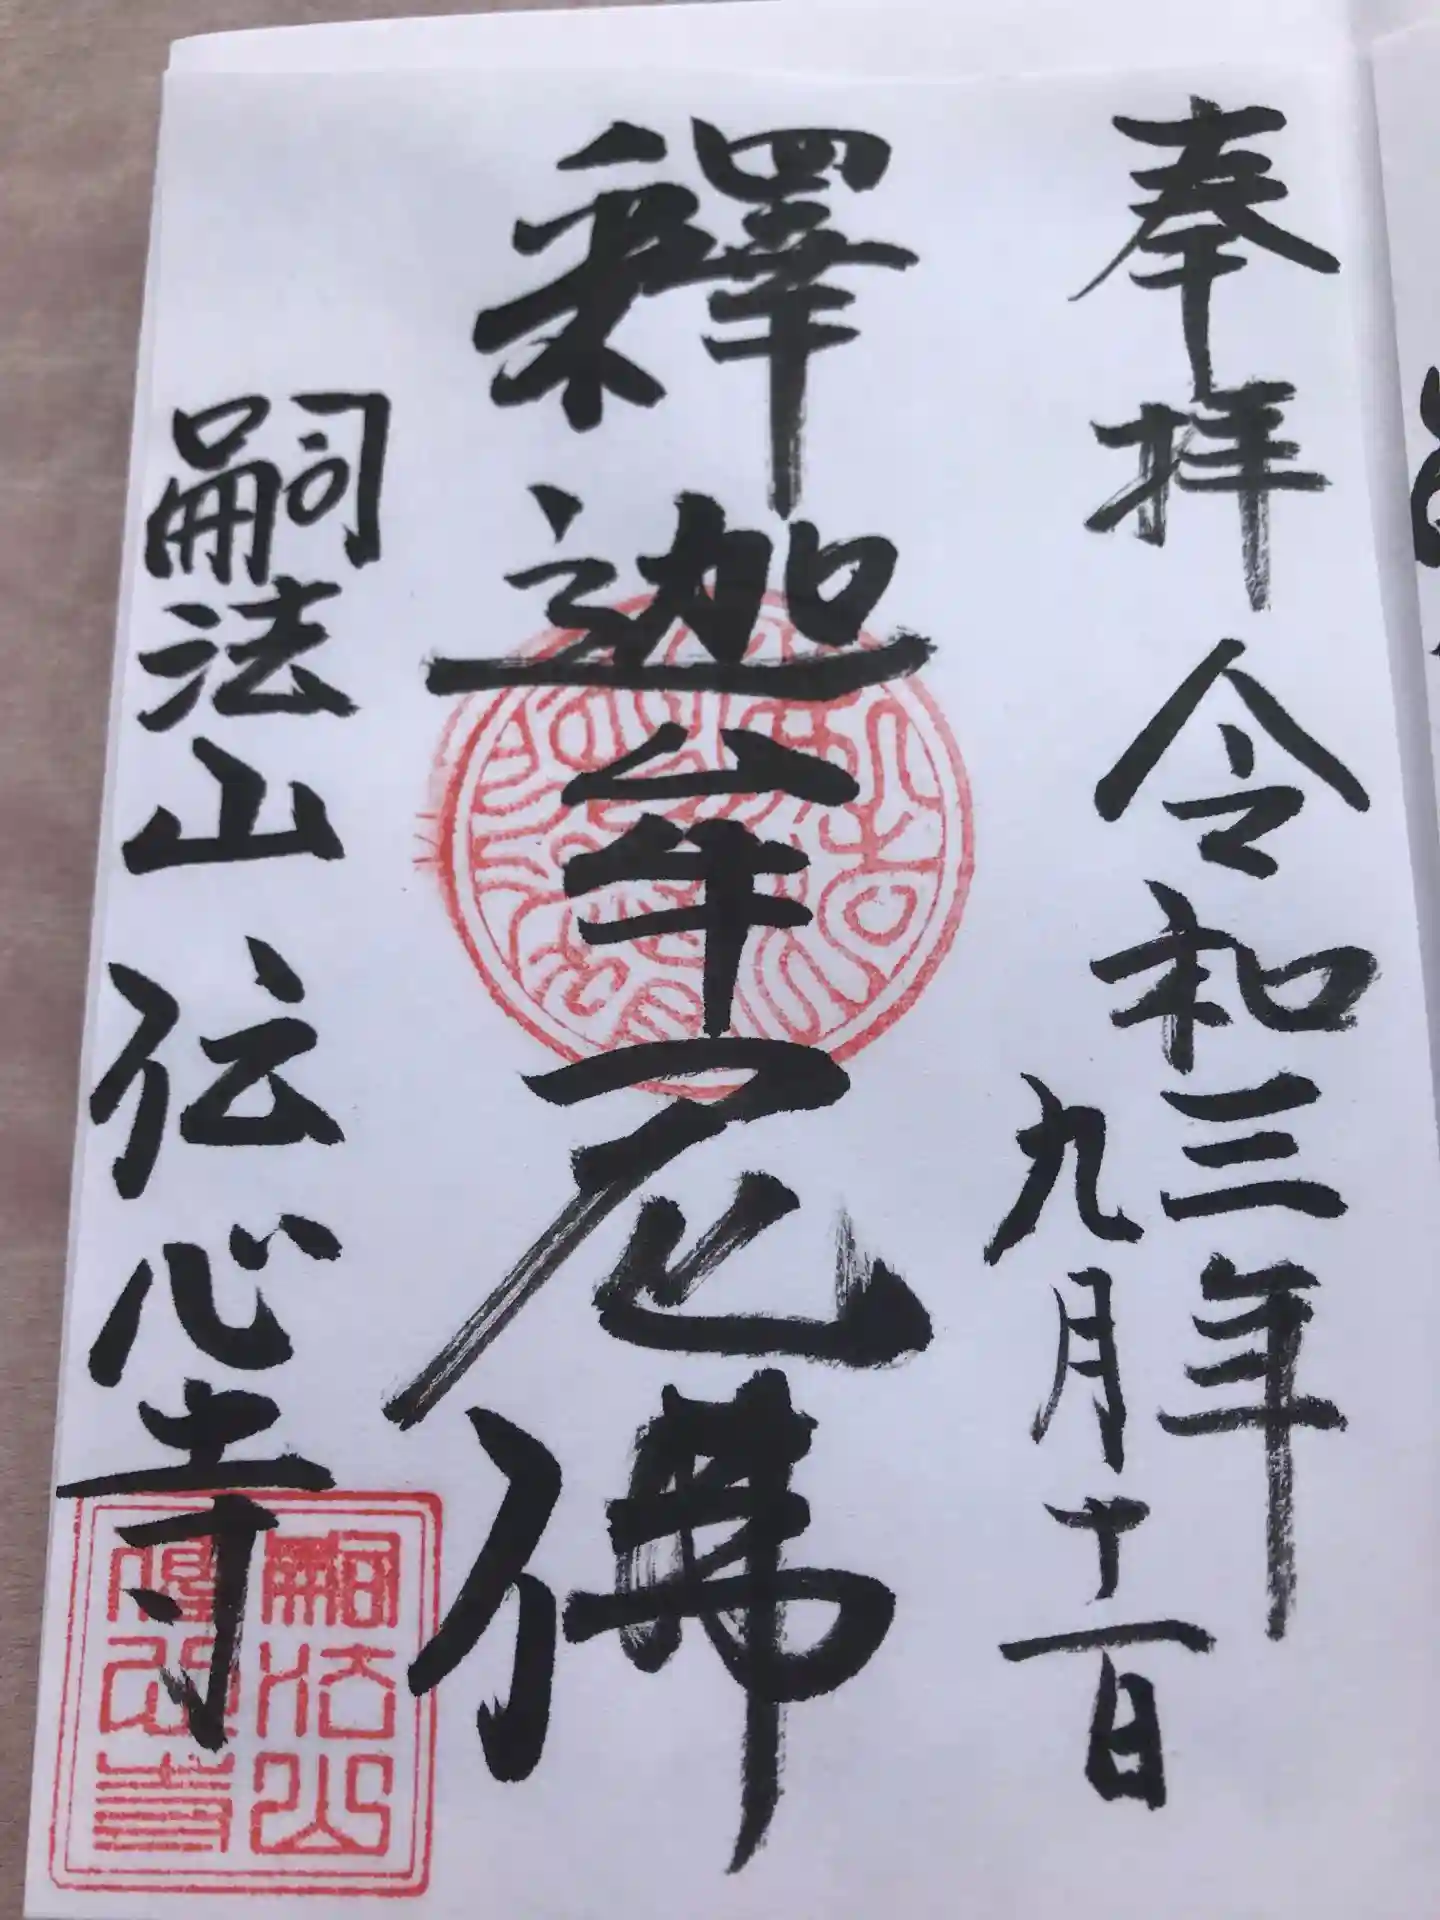 奉拝 令和三年
九月十一日
釋迦牟尼佛
嗣法山 伝心寺
嗣法山
傳心寺